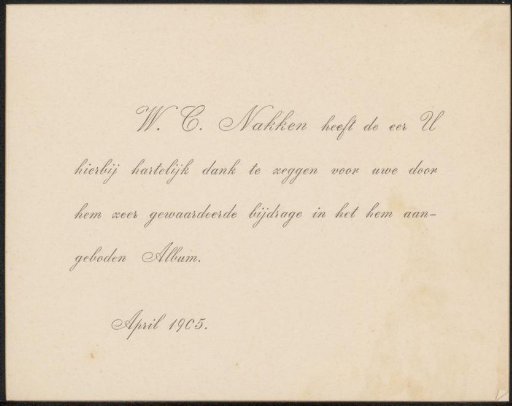 W. C. Nakken heeft de eer U
hierbij hartelijk dank te zeggen voor uwe door
hem zeer gewaardeerde bijdrage in het hem aan-
geboden Album.
April 1905.